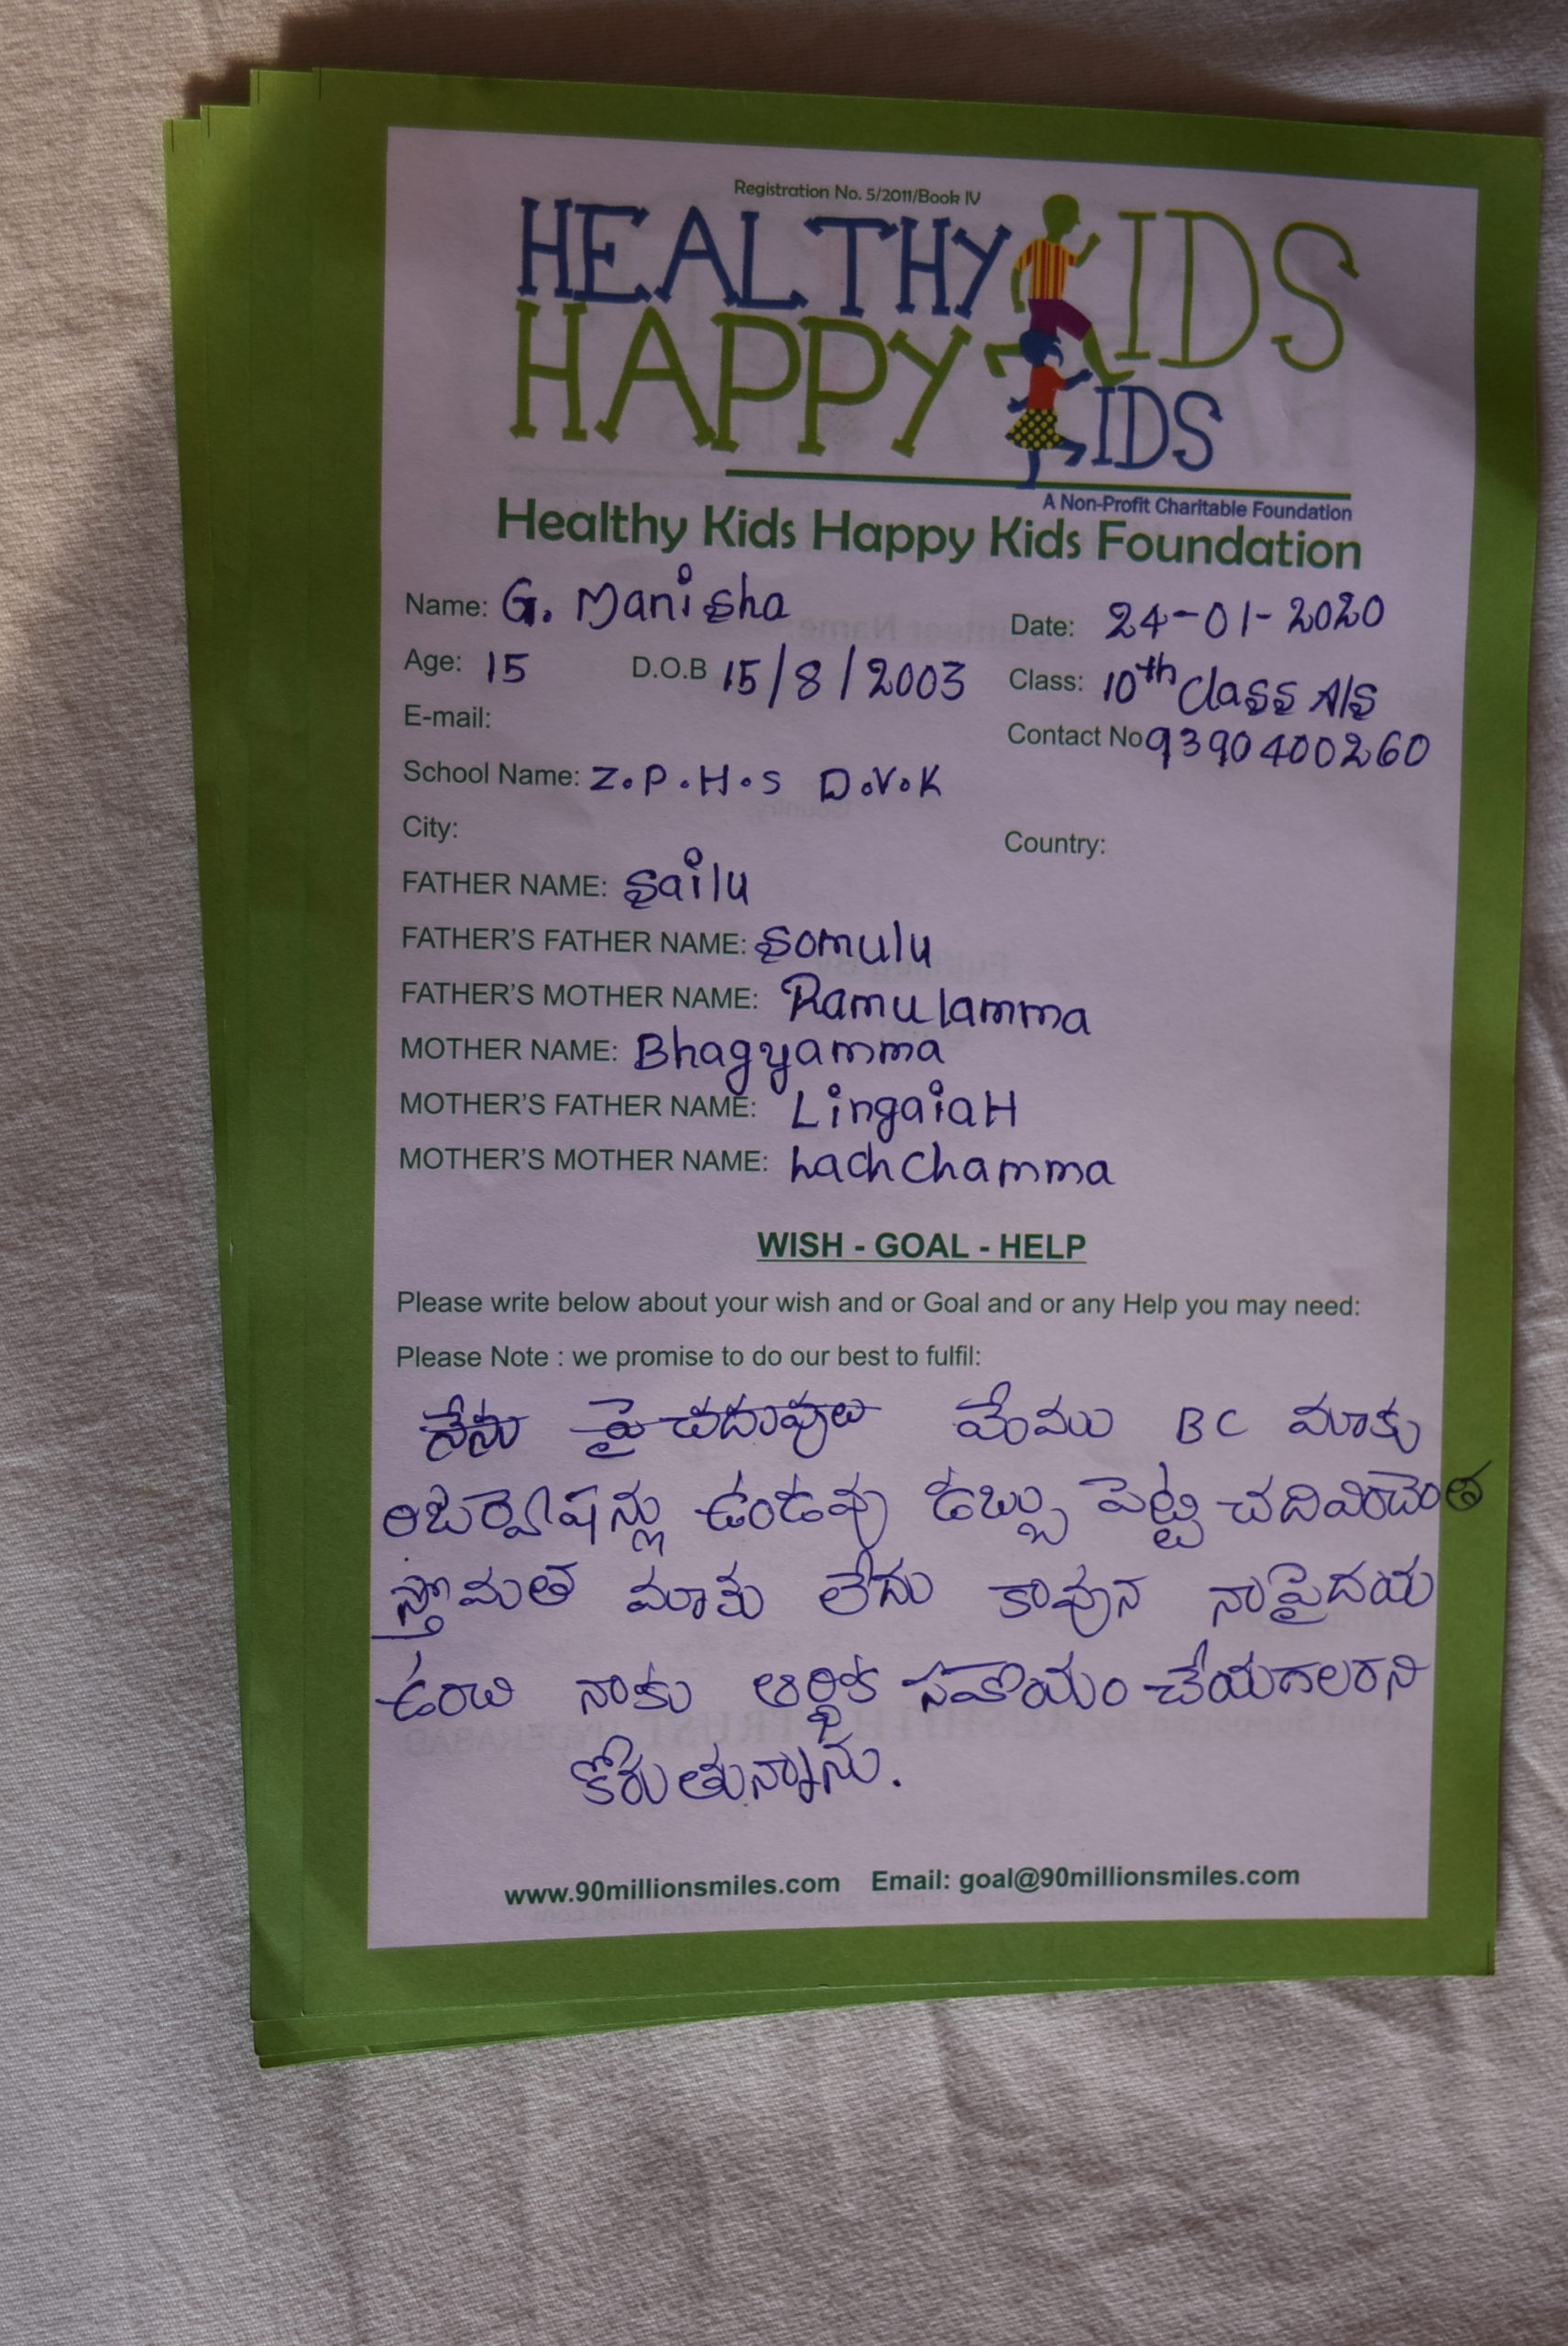 Registration No. 5/2011/Book IV
HEALTHY KIDS
HAPPY KIDS
A Non-Profit Charitable Foundation
Healthy Kids Happy Kids Foundation
Name: G. Manisha Date: 24-01-2020
Age: 15 D.O.B 15/8/2003 Class: 10th Class A/S
E-mail: Contact No 9390400260
School Name: Z.P.H.S D.V.K
City: Country:
FATHER NAME: Sailu
FATHER'S FATHER NAME: Somulu
FATHER'S MOTHER NAME: Ramulamma
MOTHER NAME: Bhagyamma
MOTHER'S FATHER NAME: LingaiaH
MOTHER'S MOTHER NAME: Lachchamma
WISH - GOAL - HELP
Please write below about your wish and or Goal and or any Help you may need:
Please Note : we promise to do our best to fulfil:
నేను పై చదువులు మేంము BC మాకు
రిజర్వేషన్లు ఉండవు డబ్బు పెట్టి చదివించెంత
స్తోమత మాకు లేదు కావున నాపైదయ
ఉంచి నాకు ఆర్థిక సహాయం చేయగలరని
కోరుతున్నాను.
www.90millionsmiles.com Email: goal@90millionsmiles.com